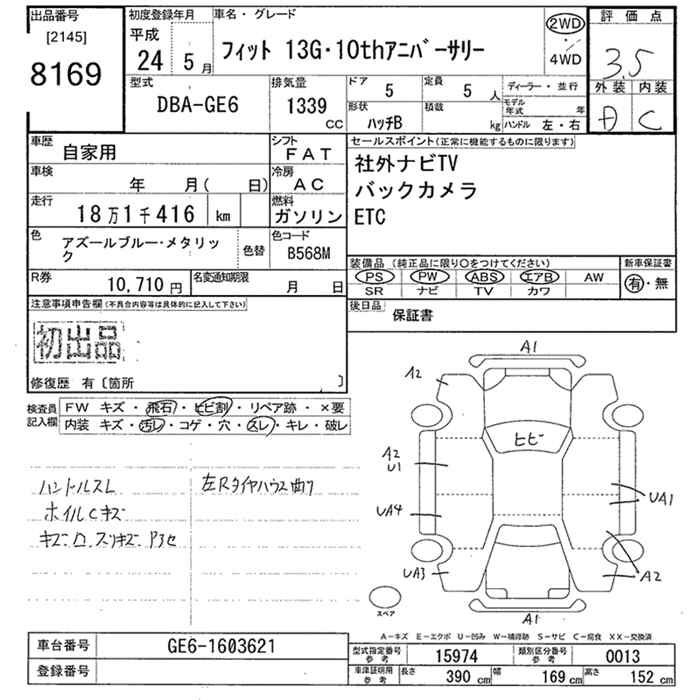 出品番号
[2145]
8169
初度登録年月
平成
24 5月
車名・グレード
フィット 13G・10thアニバーサリー
2WD
・
4WD
評価点
3.5
外装 内装
A C
型式
DBA-GE6
排気量
1339
CC
ドア
5
定員
5 人
形状
ハッチB
積載
kg
ディーラー・並行
モデル年式 年
ハンドル 左・右
車歴
自家用
シフト
FAT
車検
年 月( 日)
冷房
AC
走行
18万1千416 km
燃料
ガソリン
色
アズールブルー・メタリッ
ク
色替
色コード
B568M
R券
10,710円
名変通知期限
月 日
セールスポイント(正常に機能するものに限ります)
社外ナビTV
バックカメラ
ETC
装備品 (純正品に限り○をつけてください)
PS PW ABS エアB AW
SR ナビ TV カワ
新車保証書
有・無
後日品
保証書
注意事項申告欄(不具合内容等は具体的に記入して下さい)
初出品
修復歴 有〔箇所 〕
検査員
記入欄
FW キズ・飛石・ヒビ割・リペア跡・×要
内装 キズ・汚レ・コゲ・穴・スレ・キレ・破レ
ハンドルスレ
ホイルCキズ
左Rタイヤハウス曲り
A1
A2
ヒビ
A2
U1
UA4
UA3
UA1
A2
A1
スペア
A-キズ E-エクボ U-凹み W-補修跡 S-サビ C-腐食 XX-交換済
車台番号
GE6-1603621
登録番号
型式指定番号
参考
15974
類別区分番号
参考
0013
車庫証明用
参考
長さ
390 cm
幅
169 cm
高さ
152 cm